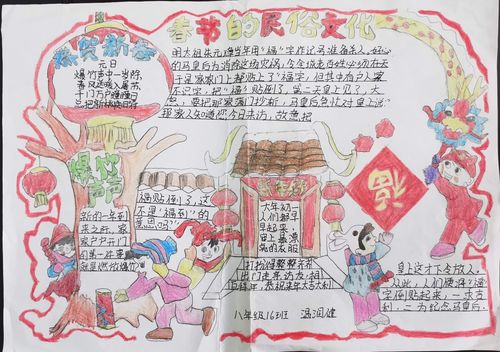 春节的民俗文化
恭贺新春
元日
爆竹声中一岁除
春风送暖入屠苏
千门万户曈曈日
总把新桃换旧符
明太祖朱元璋当年用"福"字作记号准备杀人。好心
的马皇后为消除这场灾祸,令全城老百姓必须在天
于是家家门上都贴上了"福"字,但其中有户人家
不识字,把"福"贴倒了。第二天皇上见了,大
怒,要把那家满门抄斩。马皇后急忙对皇上说:"
那家人知道您今日来访,故意把
福贴倒了,这
不是"福到"的
意思吗?"
爆竹
声声
新的一年到
来之际,家
家户户开门
的第一件事
就是燃放爆竹
大年初一
人们都早
早起来,
穿上最漂
亮的衣服
打扮得整整齐齐
出门去走访友,相
互拜年,恭祝来年大吉大利
福
皇上这才下令放人,
从此,人们便将"福"
字倒贴起来,一求吉
利,二为纪念马皇后。
八年级16班 温润健